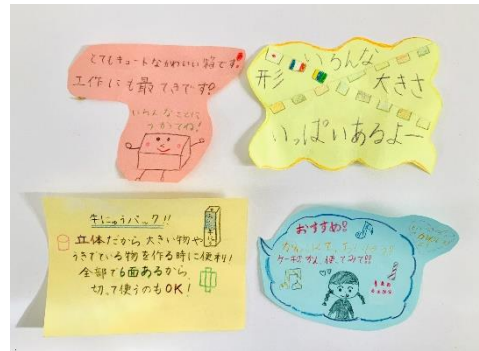 とてもキュートなかわいい箱です。
工作にも最てきです!
いろんなことに
つかってね!
いろんな
形 大きさ
いっぱいあるよー
牛にゅうパック!!
立体だから大きい物や
うきでている物を作る時に便利!
全部で6面あるから、
切って使うのもOK!
おすすめ!!
使ってみて!!